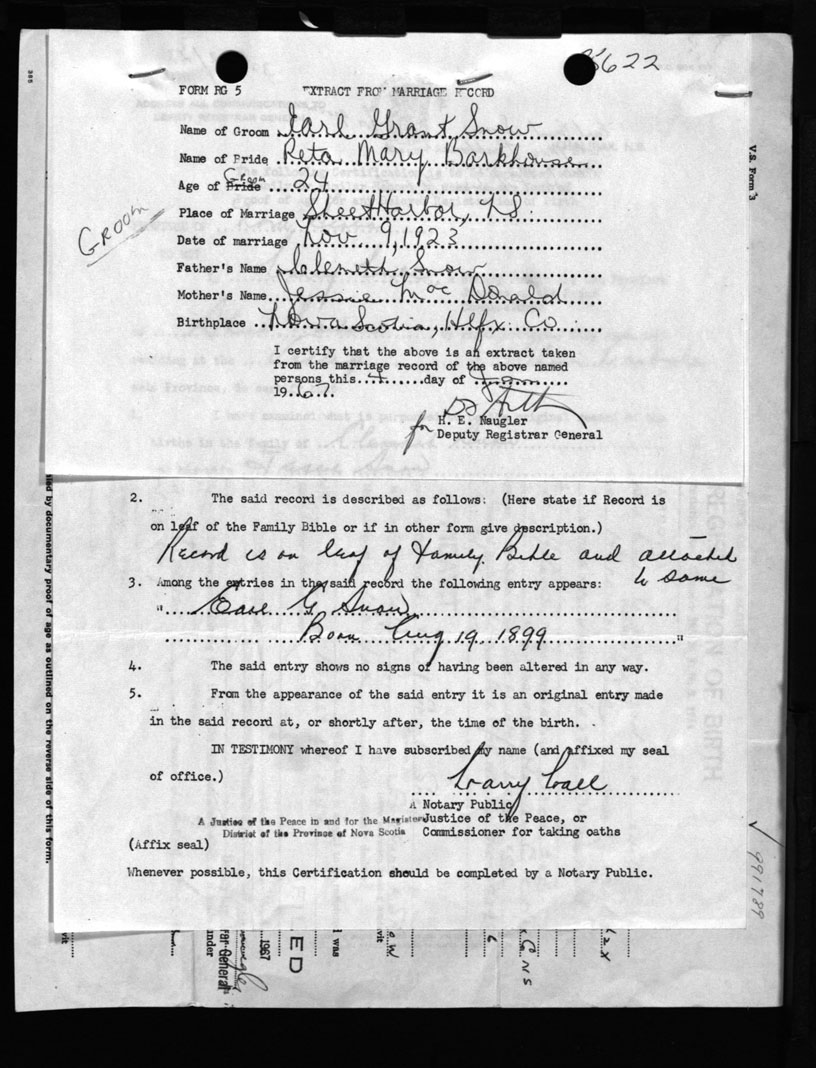 5622
FORM RG 5 EXTRACT FROM MARRIAGE RECORD
Name of Groom Earl Grant Snow
Name of Bride Reta Mary Barkhouse
Groom
Age of Bride 24
Place of Marriage Sheet Harbor, N.S.
GROOM
Date of marriage Nov 9, 1923
Father's Name Clemett Snow
Mother's Name Jessie MacDonald
Birthplace Nova Scotia, Hlfx Co
I certify that the above is an extract taken
from the marriage record of the above named
persons this 4 day of Jan
1967
for H. E. Naugler
Deputy Registrar General
V.S. Form 3
2. The said record is described as follows: (Here state if Record is
on leaf of the Family Bible or if in other form give description.)
Record is on leaf of Family Bible and attached
to same
3. Among the entries in the said record the following entry appears:
" Earl G Snow
Born Aug 19 1899 "
4. The said entry shows no signs of having been altered in any way.
5. From the appearance of the said entry it is an original entry made
in the said record at, or shortly after, the time of the birth.
IN TESTIMONY whereof I have subscribed my name (and affixed my seal
of office.)
A Notary Public
A Justice of the Peace in and for the Magister Justice of the Peace, or
District of the Province of Nova Scotia Commissioner for taking oaths
(Affix seal)
Whenever possible, this Certification should be completed by a Notary Public.
by documentary proof of age as outlined on the reverse side of this form.
991789
1967
ED
I was
Co NS